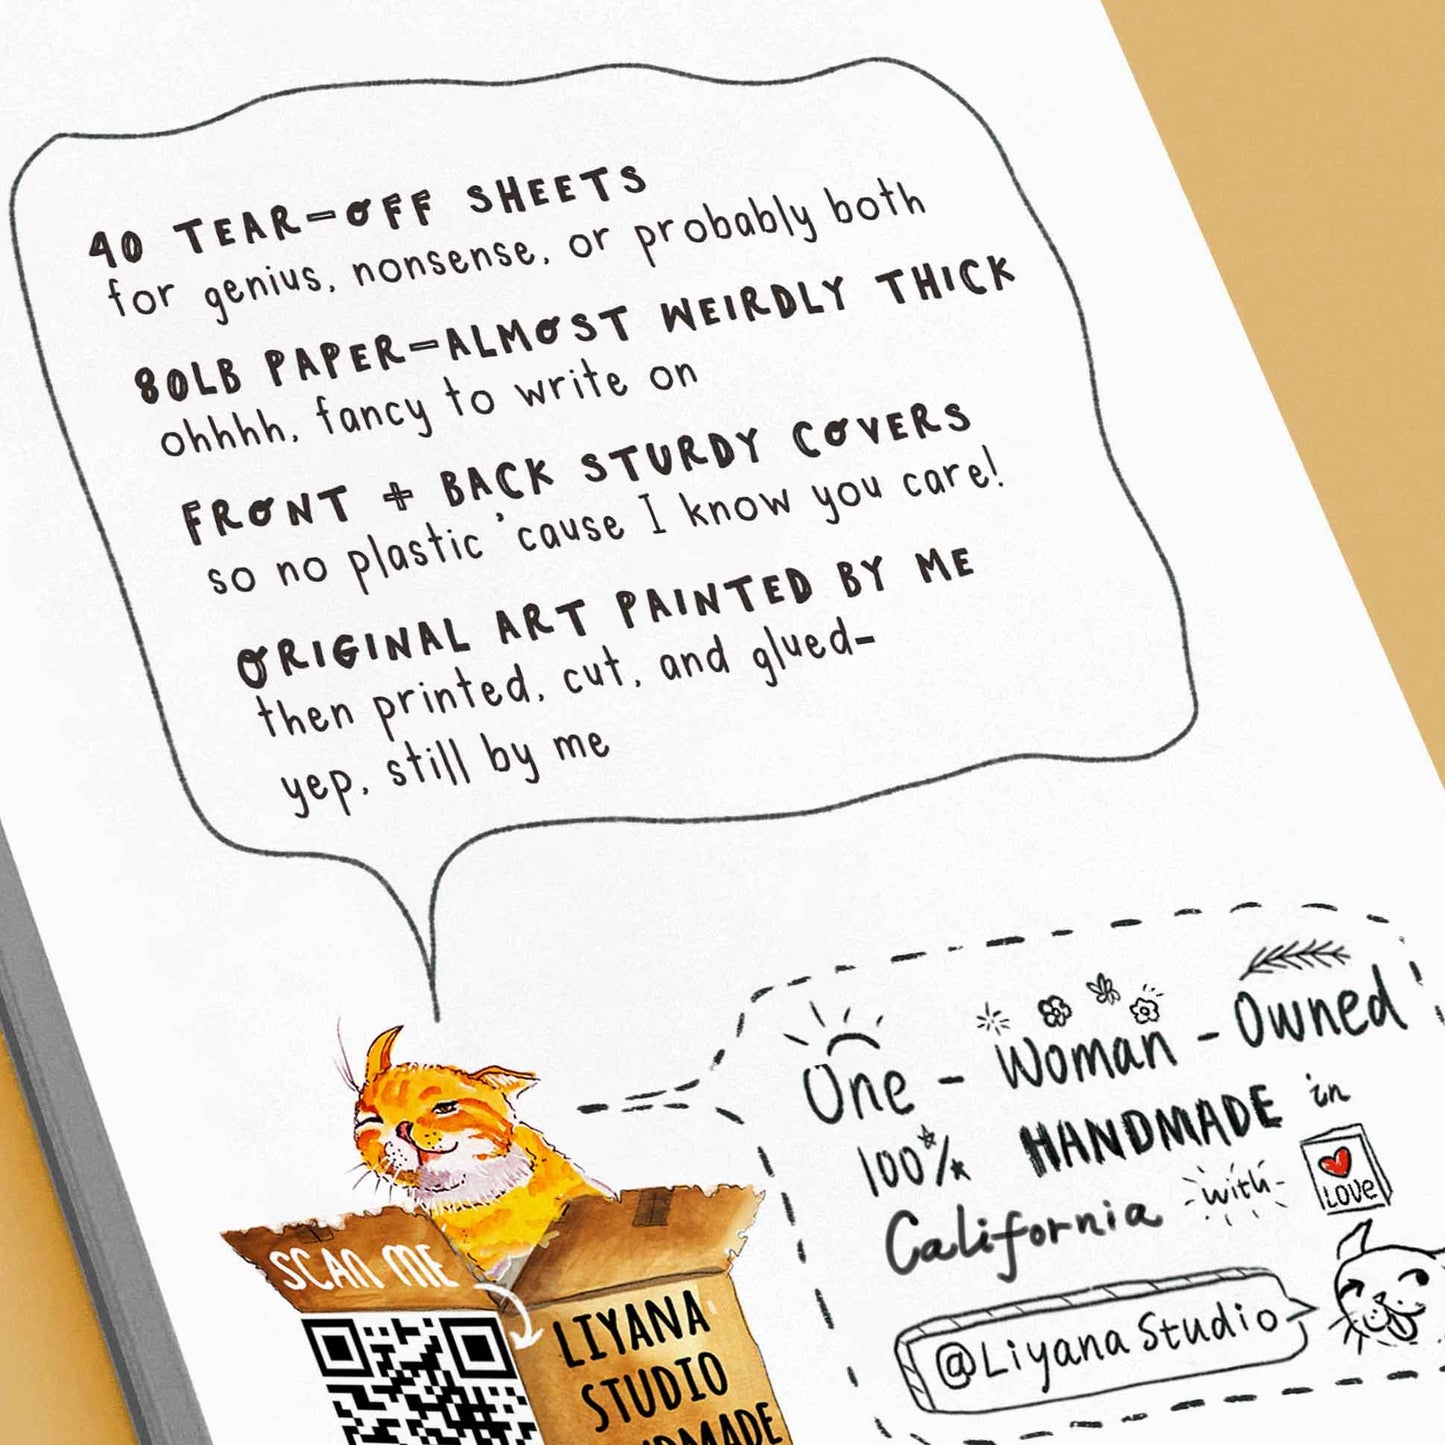 40 TEAR-OFF SHEETS
for genius, nonsense, or probably both
80LB PAPER-ALMOST WEIRDLY THICK
ohhhh, fancy to write on
FRONT + BACK STURDY COVERS
so no plastic 'cause I know you care!
ORIGINAL ART PAINTED BY ME
then printed, cut, and glued-
yep, still by me
One - Woman - Owned
100% HANDMADE in
California with LOVE
@Liyana Studio
SCAN ME
LIYANA
STUDIO